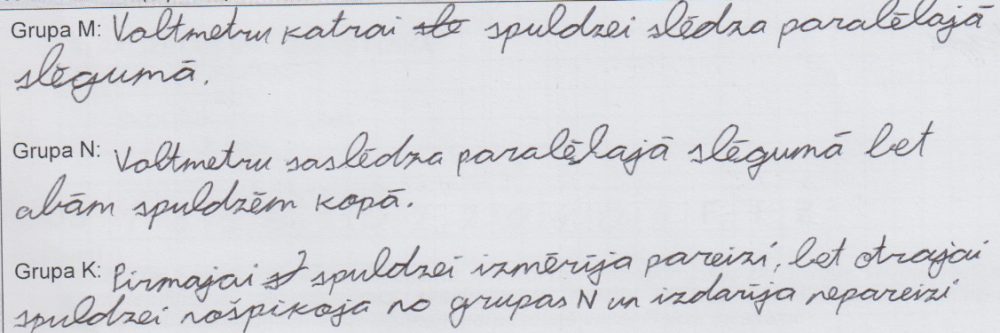 Grupa M: Voltmetru katrai slē spuldzei slēdza paralēlajā
slēgumā.
Grupa N: Voltmetru saslēdza paralēlajā slēgumā bet
abām spuldzēm kopā.
Grupa K: Pirmajai spuldzei izmērīja pareizi, bet otrajai
spuldzei nošpikoja no grupas N un izdarīja nepareizi